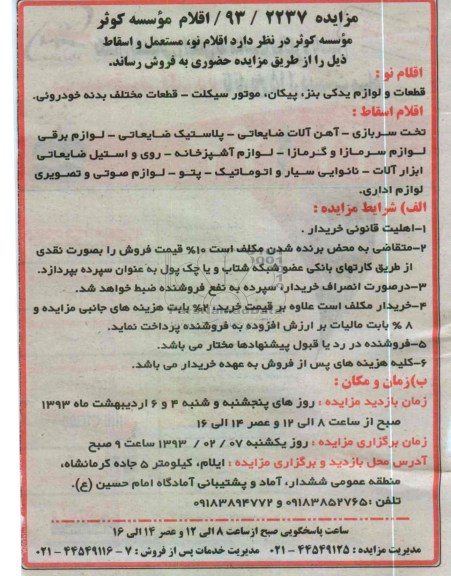 مزایده ۲۲۳۷ / ۹۳ / اقلام مؤسسه کوثر
مؤسسه کوثر در نظر دارد اقلام نو، مستعمل و اسقاط
ذیل را از طریق مزایده حضوری به فروش رساند.
اقلام نو :
قطعات و لوازم یدکی بنز، پیکان، موتور سیکلت - قطعات مختلف بدنه خودرونی.
اقلام اسقاط :
تخت سربازی - آهن آلات ضایعاتی - پلاستیک ضایعاتی - لوازم برقی
لوازم سرمازا و گرمازا - لوازم آشپزخانه - روی و استیل ضایعاتی
ابزار آلات - نانوایی سیار و اتوماتیک - پتو - لوازم صوتی و تصویری
لوازم اداری.
الف) شرایط مزایده :
۱-اهلیت قانونی خریدار .
۲-متقاضی به محض برنده شدن مکلف است ۱۰% قیمت فروش را بصورت نقدی
از طریق کارتهای بانکی عضو شبکه شتاب و یا چک پول به عنوان سپرده بپردازد.
۳-درصورت انصراف خریدار، سپرده به نفع فروشنده ضبط خواهد شد.
۴-خریدار مکلف است علاوه بر قیمت خرید، ۲% بابت هزینه های جانبی مزایده و
۸ % بابت مالیات بر ارزش افزوده به فروشنده پرداخت نماید.
۵-فروشنده در رد یا قبول پیشنهادها مختار می باشد.
۶-کلیه هزینه های پس از فروش به عهده خریدار می باشد.
ب)زمان و مکان :
زمان بازدید مزایده : روز های پنجشنبه و شنبه ۴ و ۶ اردیبهشت ماه ۱۳۹۳
صبح از ساعت ۸ الی ۱۲ و عصر ۱۴ الی ۱۶
زمان برگزاری مزایده : روز یکشنبه ۰۷ / ۰۲ / ۱۳۹۳ ساعت ۹ صبح
آدرس محل بازدید و برگزاری مزایده : ایلام، کیلومتر ۵ جاده کرمانشاه،
منطقه عمومی ششدار، آماد و پشتیبانی آمادگاه امام حسین (ع).
تلفن :۰۹۱۸۳۸۵۲۷۶۵ و ۰۹۱۸۳۸۹۴۷۷۲
ساعت پاسخگویی صبح ازساعت ۸ الی ۱۲ و عصر ۱۴ الی ۱۶
مدیریت مزایده : ۴۴۵۴۹۱۲۵ - ۰۲۱ مدیریت خدمات پس از فروش : ۷ - ۴۴۵۴۹۱۱۶ - ۰۲۱